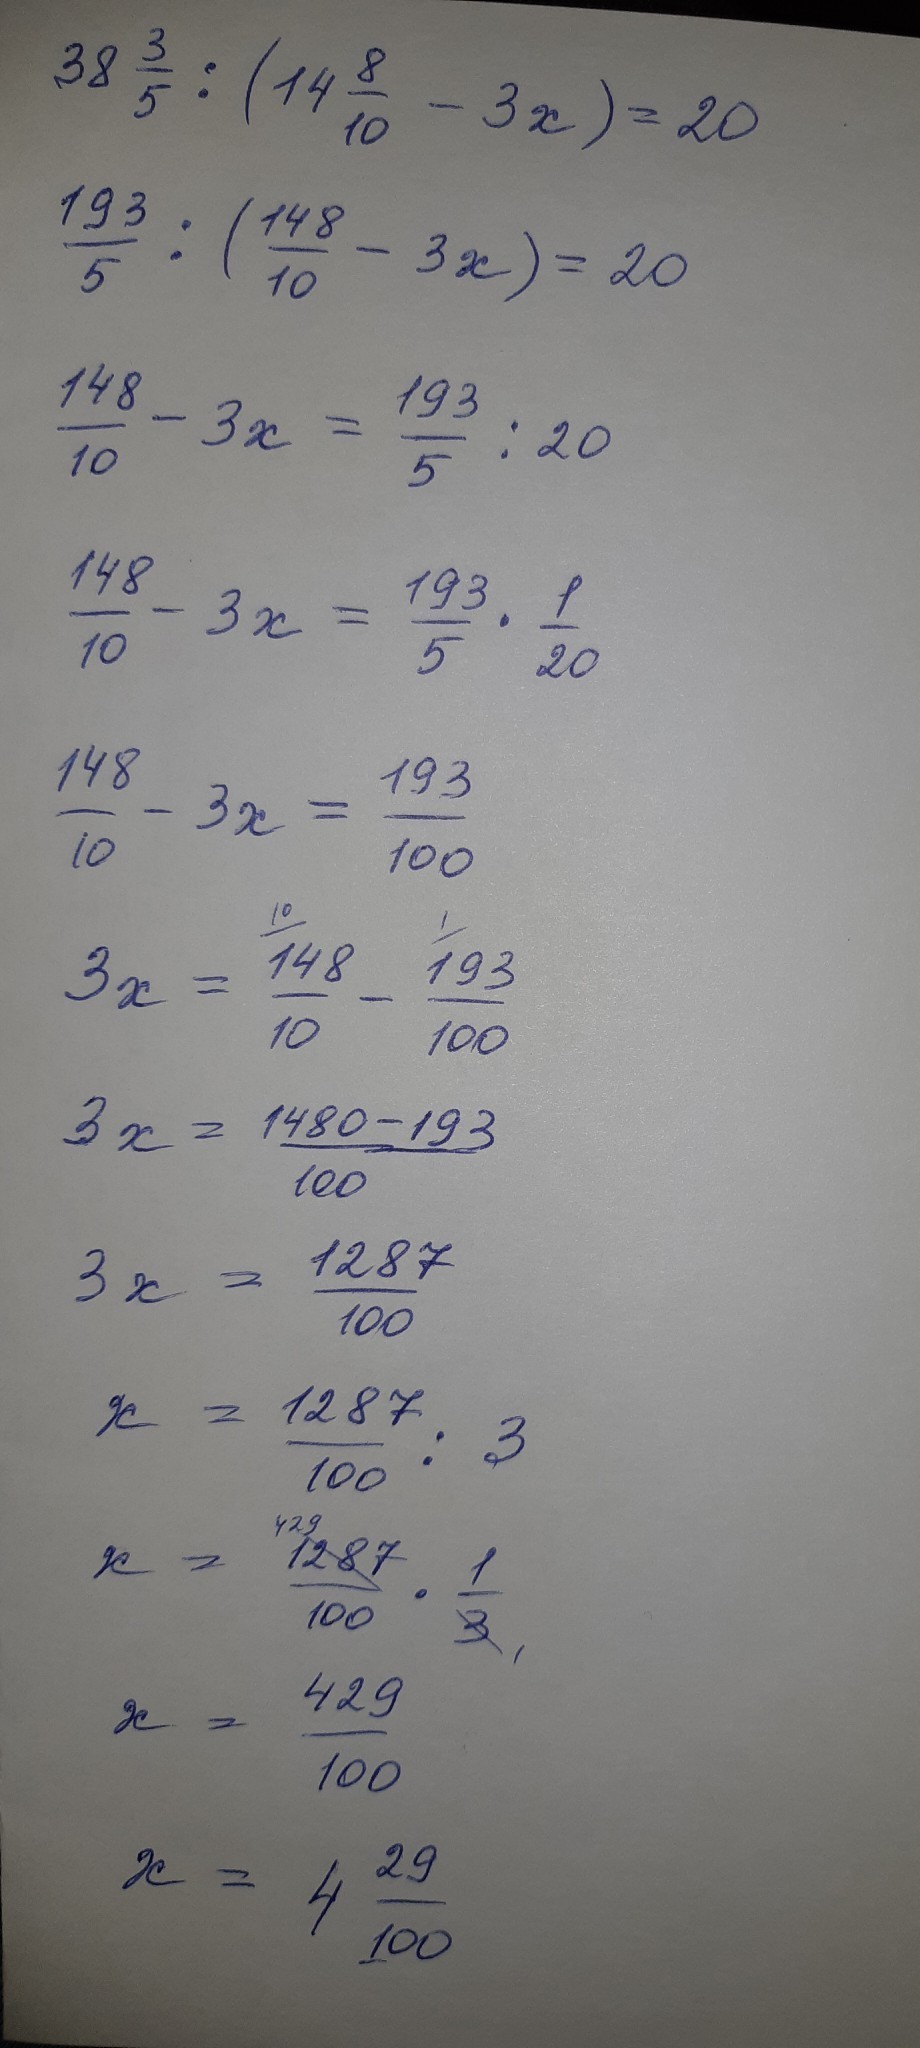 38 3/5 : (14 8/10 - 3x) = 20
193/5 : (148/10 - 3x) = 20
148/10 - 3x = 193/5 : 20
148/10 - 3x = 193/5 · 1/20
148/10 - 3x = 193/100
10/ 1/
3x = 148/10 - 193/100
3x = 1480-193/100
3x = 1287/100
x = 1287/100 : 3
429
x = 1287/100 · 1/3
1
x = 429/100
x = 4 29/100